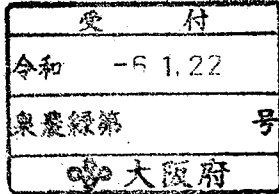 受付
令和 -6.1.22
泉農緑第 号
大阪府